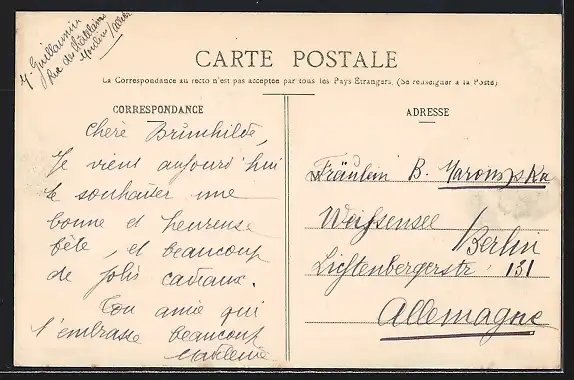 M. Guillaumin
Rue de
Moulins/Allier
CARTE POSTALE
La Correspondance au recto n'est pas acceptée par tous les Pays Étrangers. (Se renseigner à la Poste)
CORRESPONDANCE
Chère Brunhilde,
Je viens aujourd'hui
te souhaiter une
bonne et heureuse
fête, et beaucoup
de jolis cadeaux.
Ton amie qui
t'embrasse beaucoup
Madeleine
ADRESSE
Fräulein B.
Weißensee
/Berlin
Lichtenbergerstr. 131
Allemagne